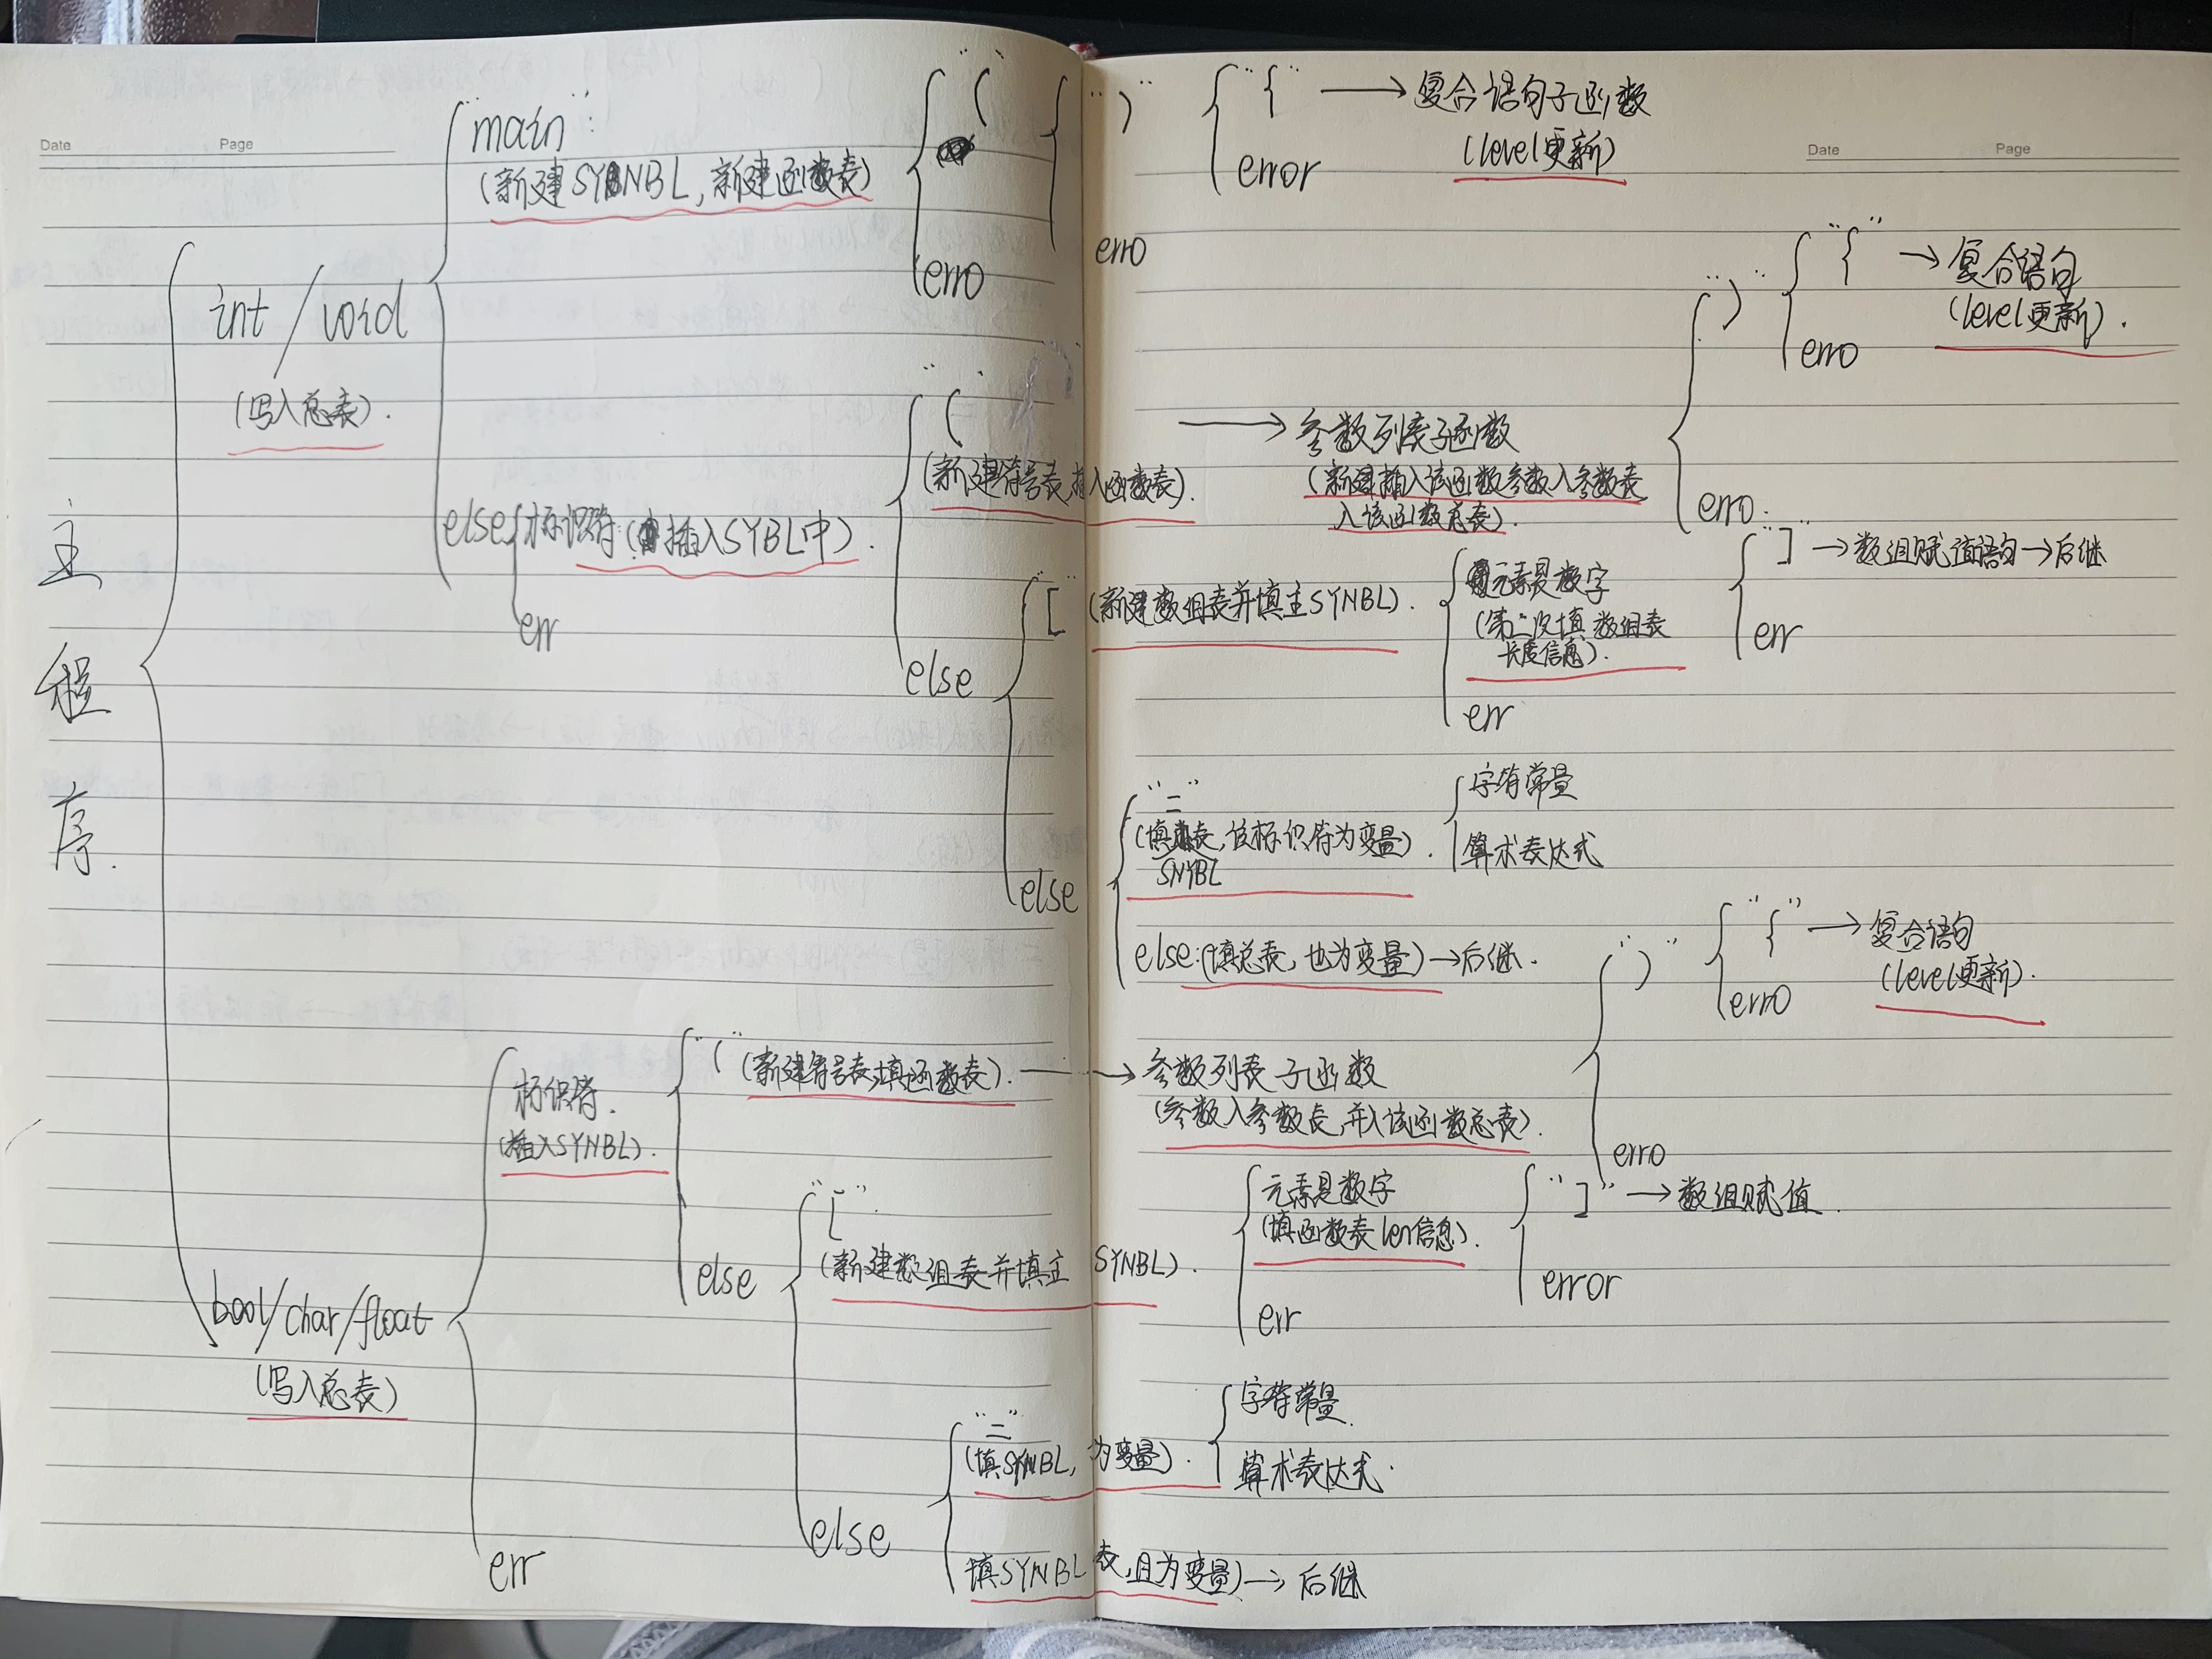 Date Page
Date Page
主程序.
int / void
(写入总表).
"main":
(新建SYNBL,新建函数表)
"("
")"
"{" → 复合语句子函数
(level更新)
error
erro
erro
else 标识符 (插入SYBL中).
err
"("
(新建符号表,插入函数表).
→ 参数列表子函数
(新建插入该函数参数入参数表
入该函数总表).
")"
"{" → 复合语句
(level更新).
erro
erro.
else
"["
(新建数组表并填主SYNBL).
元素是数字
(第二次填数组表
长度信息).
"]" → 数组赋值语句 → 后继
err
err
else
"="
(填表,该标识符为变量).
SNYBL
字符常量
算术表达式
else:(填总表,也为变量) → 后继.
bool/char/float
(写入总表)
标识符.
(插入SYNBL).
"(" (新建符号表,填函数表). → 参数列表子函数
(参数入参数表,并入该函数总表).
")"
"{" → 复合语句
(level更新).
erro
erro
else
"["
(新建数组表并填主SYNBL).
元素是数字
(填函数表len信息).
"]" → 数组赋值.
error
err
else
"="
(填SYNBL,为变量).
字符常量.
算术表达式.
填SYNBL表,且为变量) → 后继
err